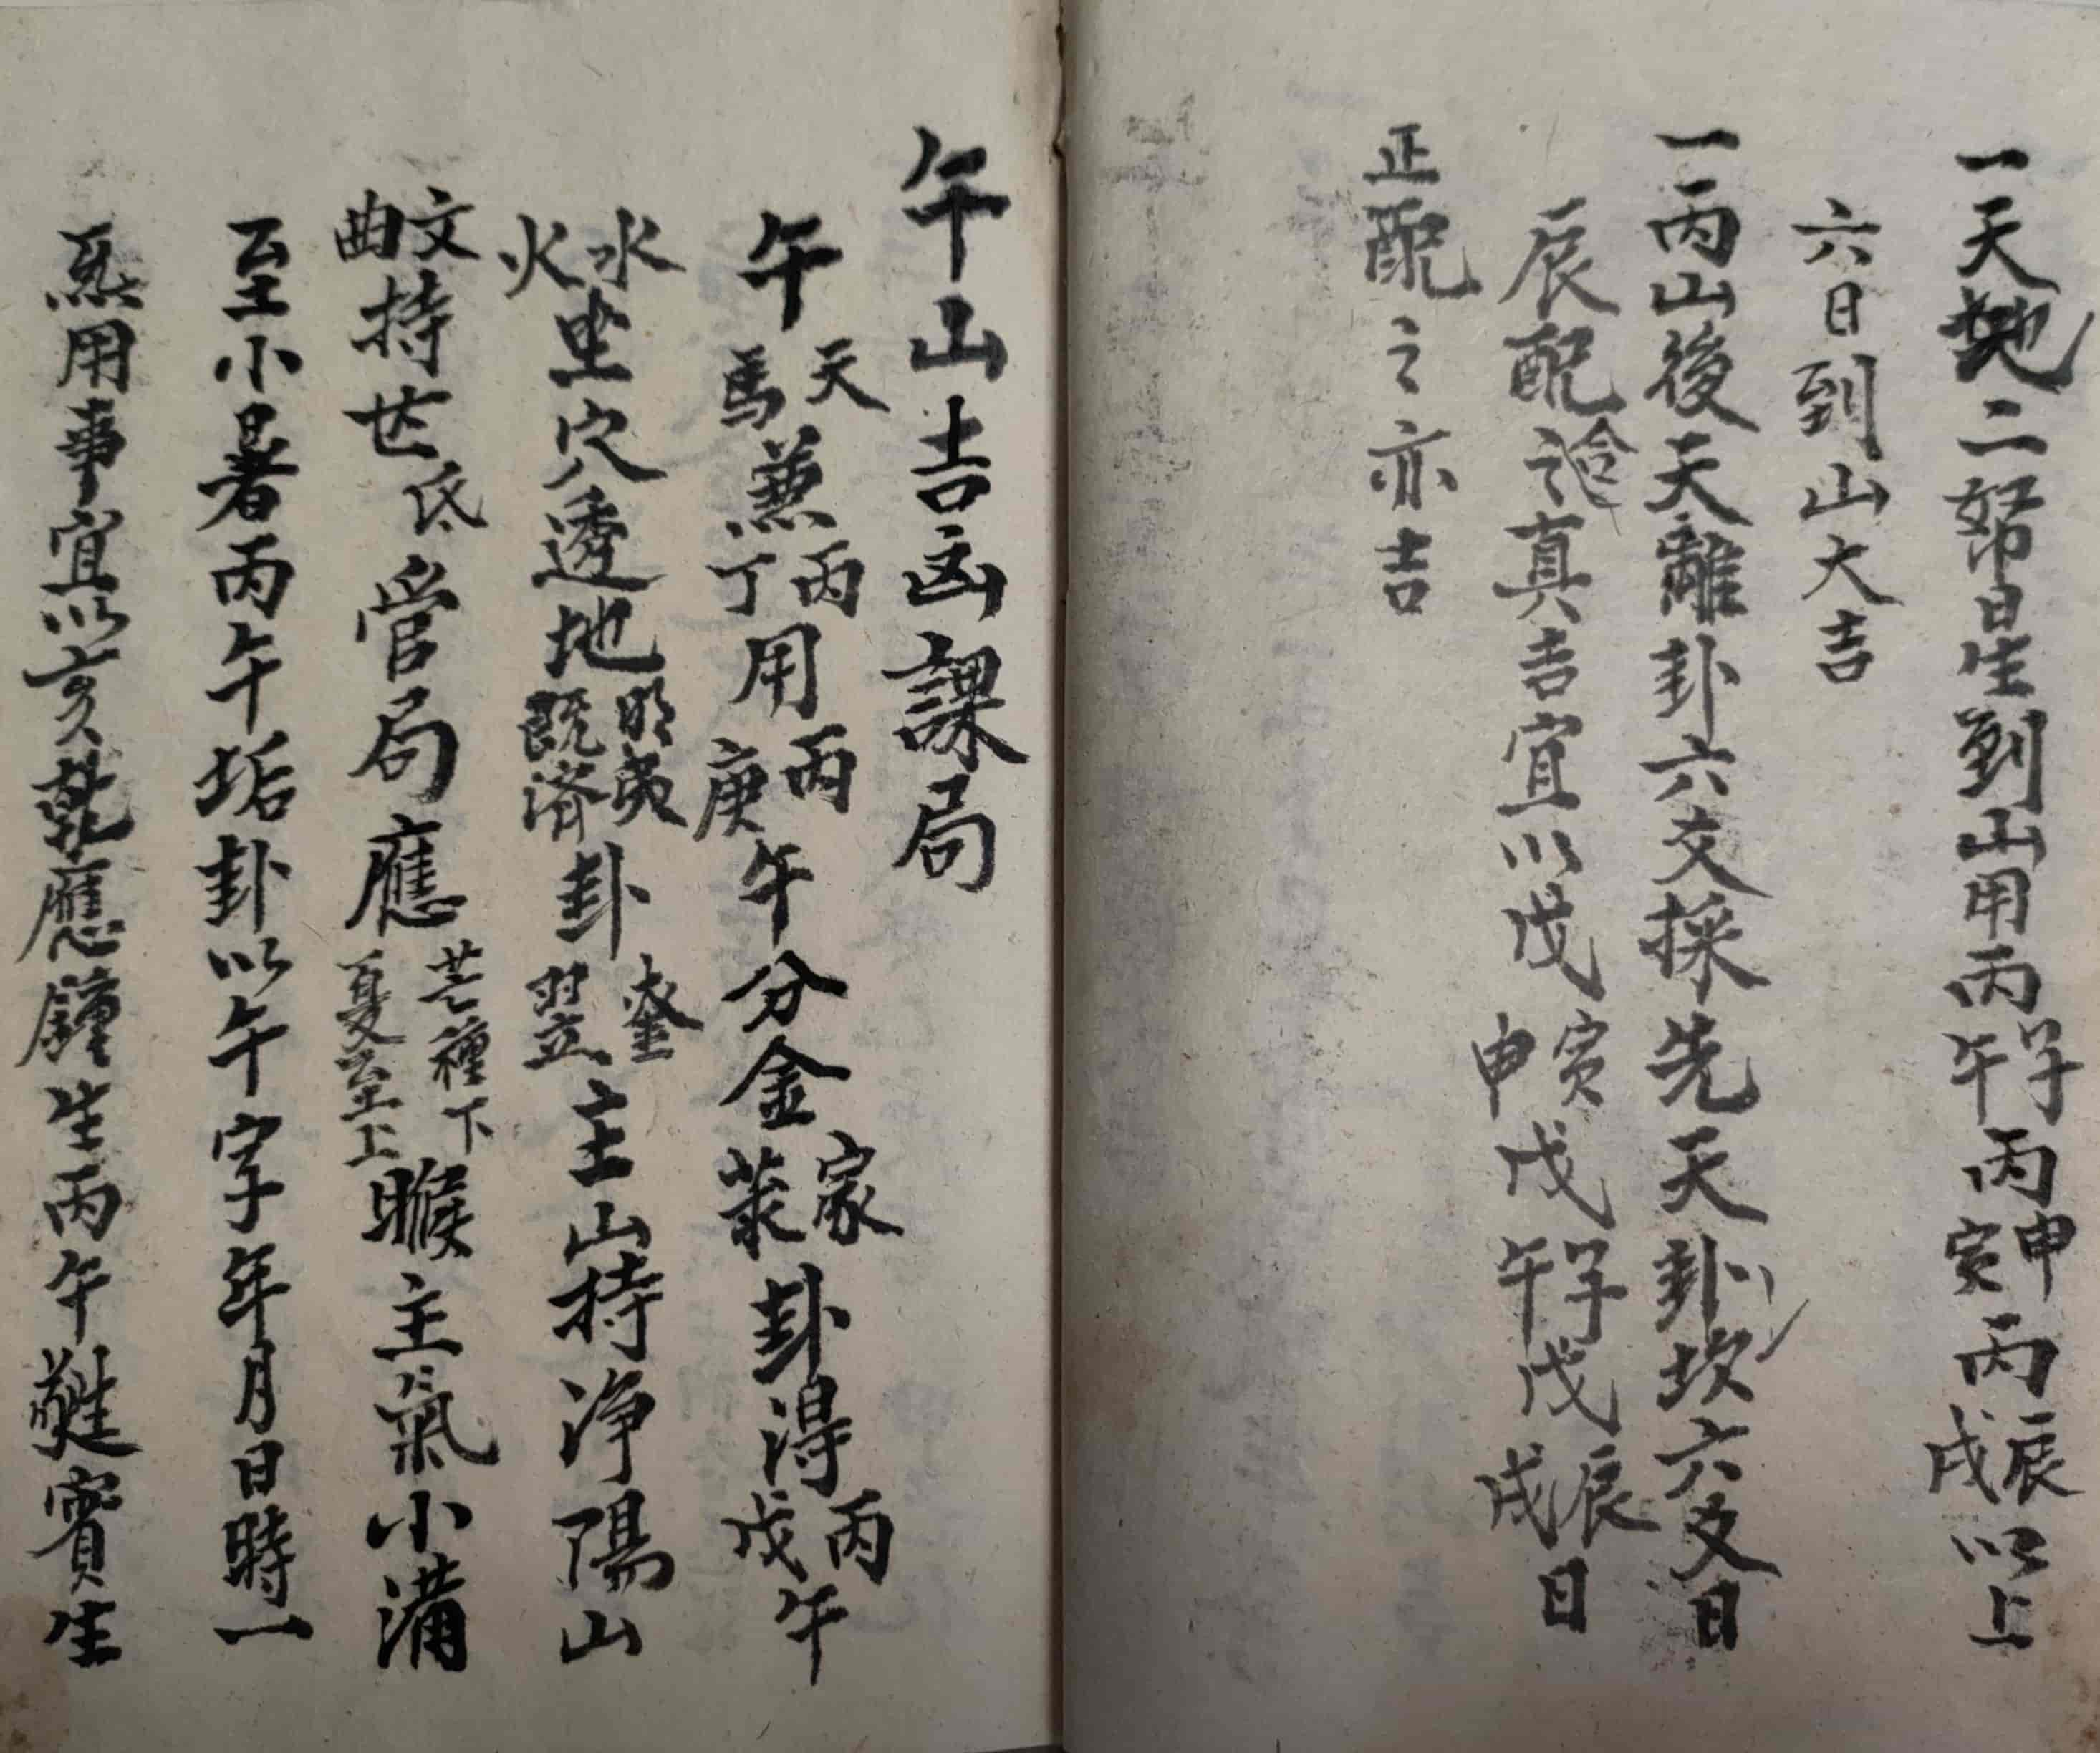 一天地二帑日生到山用丙子午丙申寅丙辰戌以上
六日到山大吉
一丙山後天離卦六交採先天卦坎六爻日
辰配詥真吉宜以戊寅申戊子午戊辰戌日
正配之亦吉
午山吉凶課局
午天馬兼丙丁用丙庚午分金家卦得丙戊午
水火坐穴透地明夷既济卦翌主山持净陽山
文曲持世氐管局應芒種下夏至上睺主氣小満
至小暑丙午垢卦以午字年月日時一
炁用事宜以亥乾應鐘生丙午蕤賓生